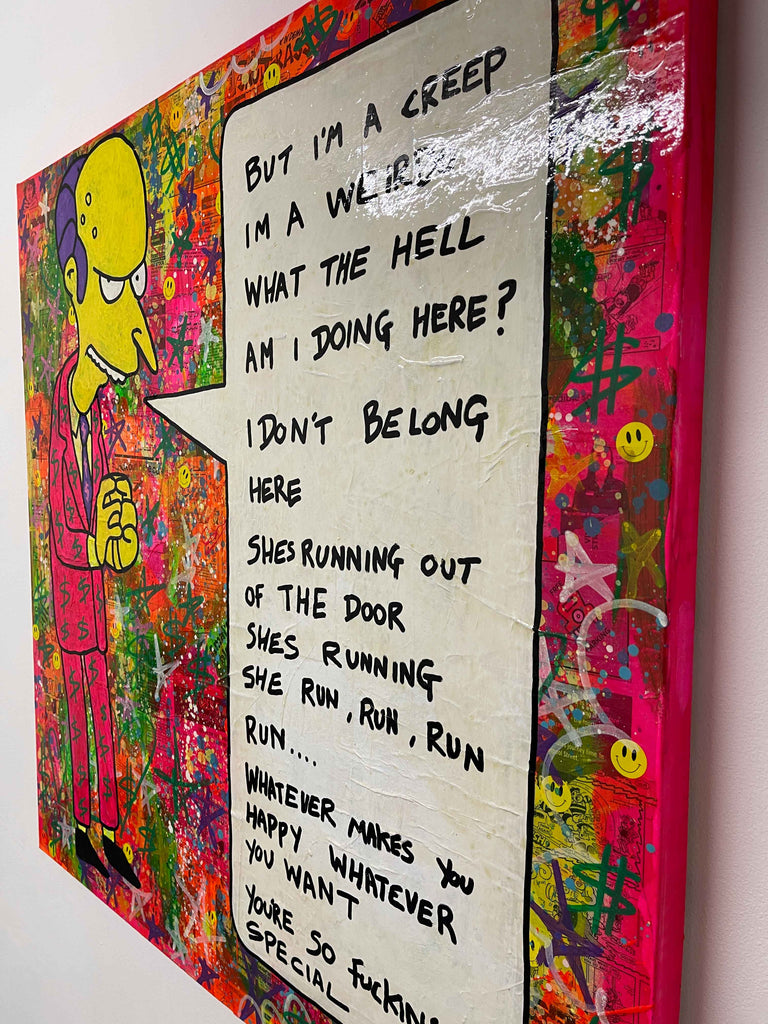 BUT I'M A CREEP
IM A WEIRDO
WHAT THE HELL
AM I DOING HERE?
I DON'T BELONG
HERE
SHES RUNNING OUT
OF THE DOOR
SHES RUNNING
SHE RUN, RUN, RUN
RUN....
WHATEVER MAKES YOU
HAPPY WHATEVER
YOU WANT
YOU'RE SO FUCKIN
SPECIAL